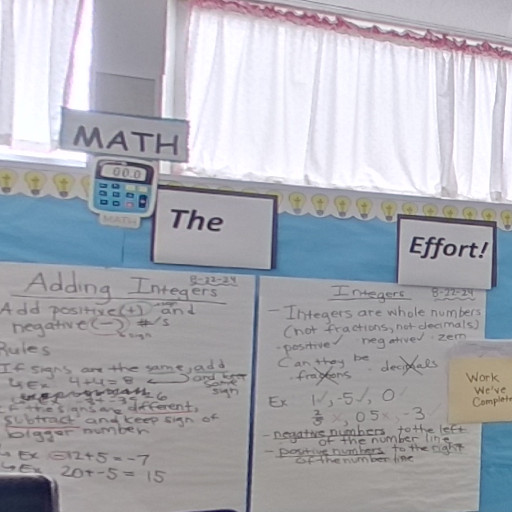 MATH
00.0
MATH
The
Effort!
Adding Integers
8-22-24
Add positive (+) and
negative (-) #'s
sign
Rules
If signs are the same, add
and keep
same
sign
Ex 4+4=8
If the signs are different,
subtract and keep sign of
bigger number
Ex -12+5=-7
Ex 20+-5= 15
Integers 8-22-24
- Integers are whole numbers
(not fractions, not decimals)
positive negative zero
Can they be
fractions decimals
Ex 1, -5, 0
0.5 -3
- negative numbers to the left
of the number line
- positive numbers to the right
of the number line
Work
We've
Complete